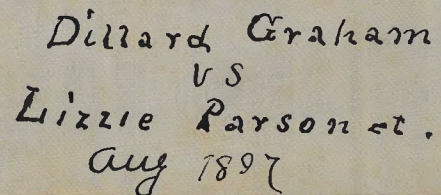 Dillard Graham
vs
Lizzie Parson et.
Aug 1897